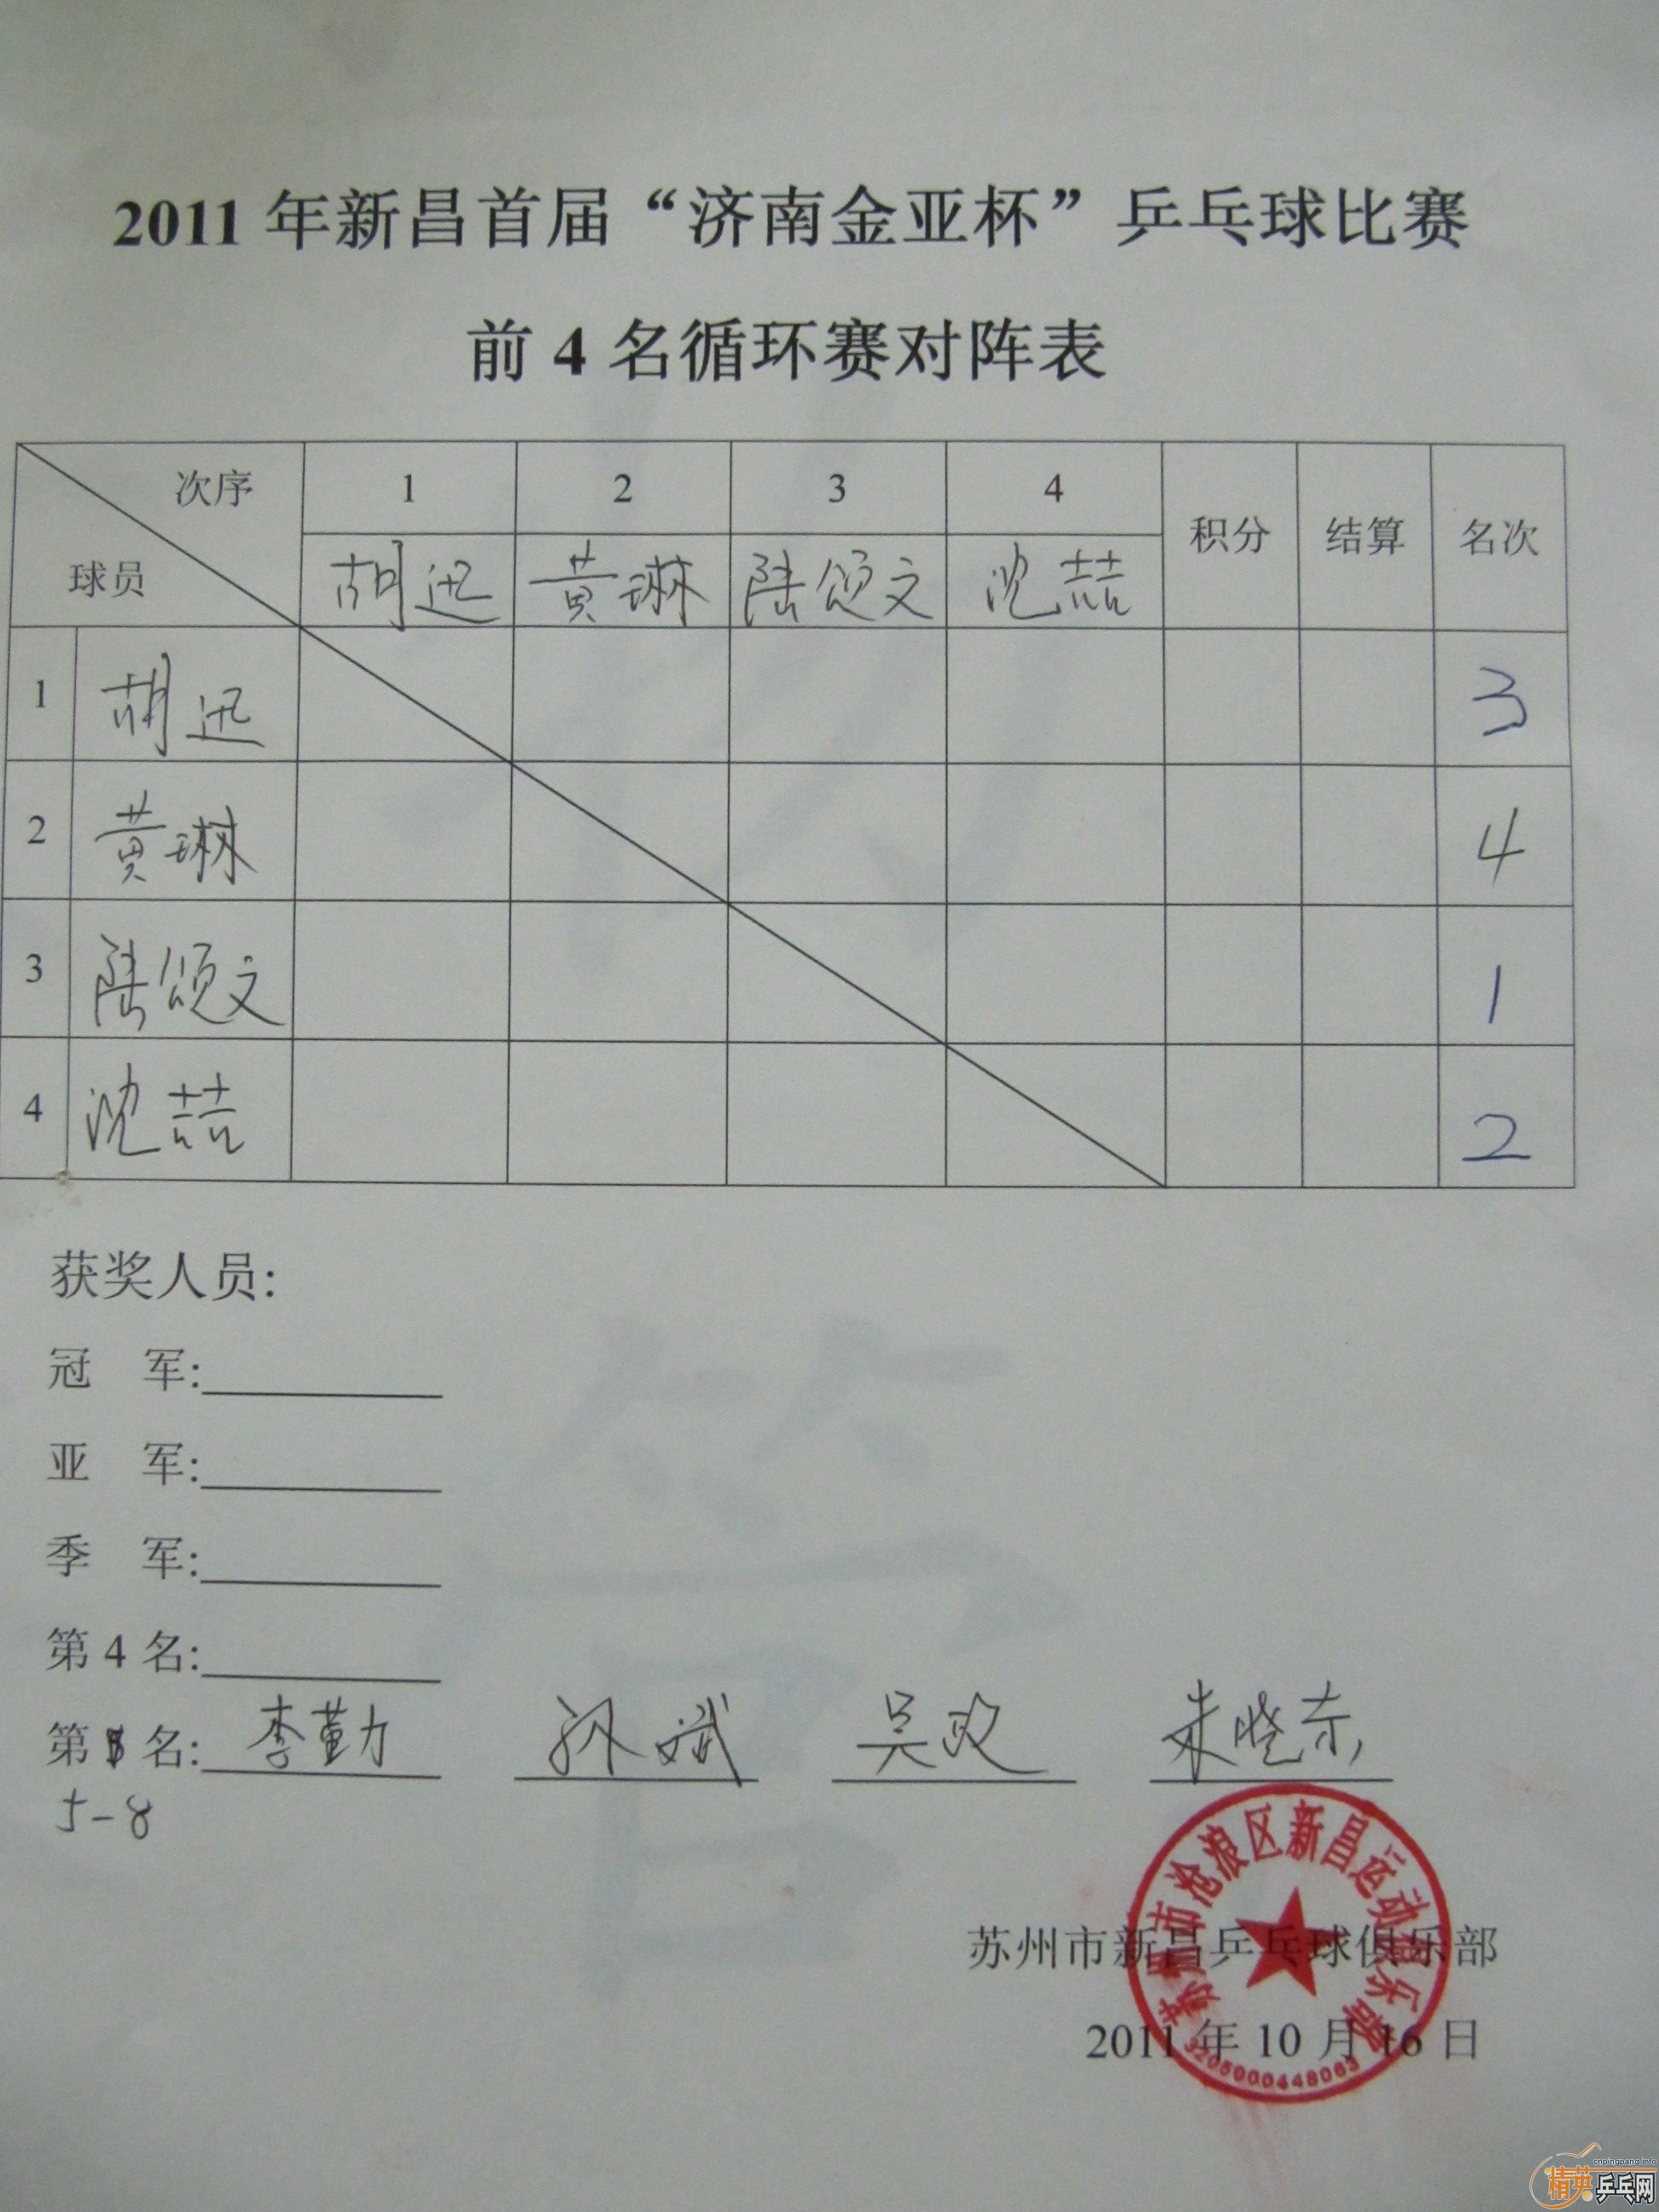 2011 年新昌首届“济南金亚杯”乒乓球比赛
前 4 名循环赛对阵表
次序 1 2 3 4 积分 结算 名次
球员 胡迅 黄琳 陆颂文 沈喆
1 胡迅 3
2 黄琳 4
3 陆颂文 1
4 沈喆 2
获奖人员:
冠 军:
亚 军:
季 军:
第 4 名:
第 名: 李勤 孙斌 吴政 朱晓东
5-8
苏州市沧浪区新昌运动俱乐部
苏州市新昌乒乓球俱乐部
2011 年 10 月 16 日
3205000448063
cnpingpang.info
精英乒乓网